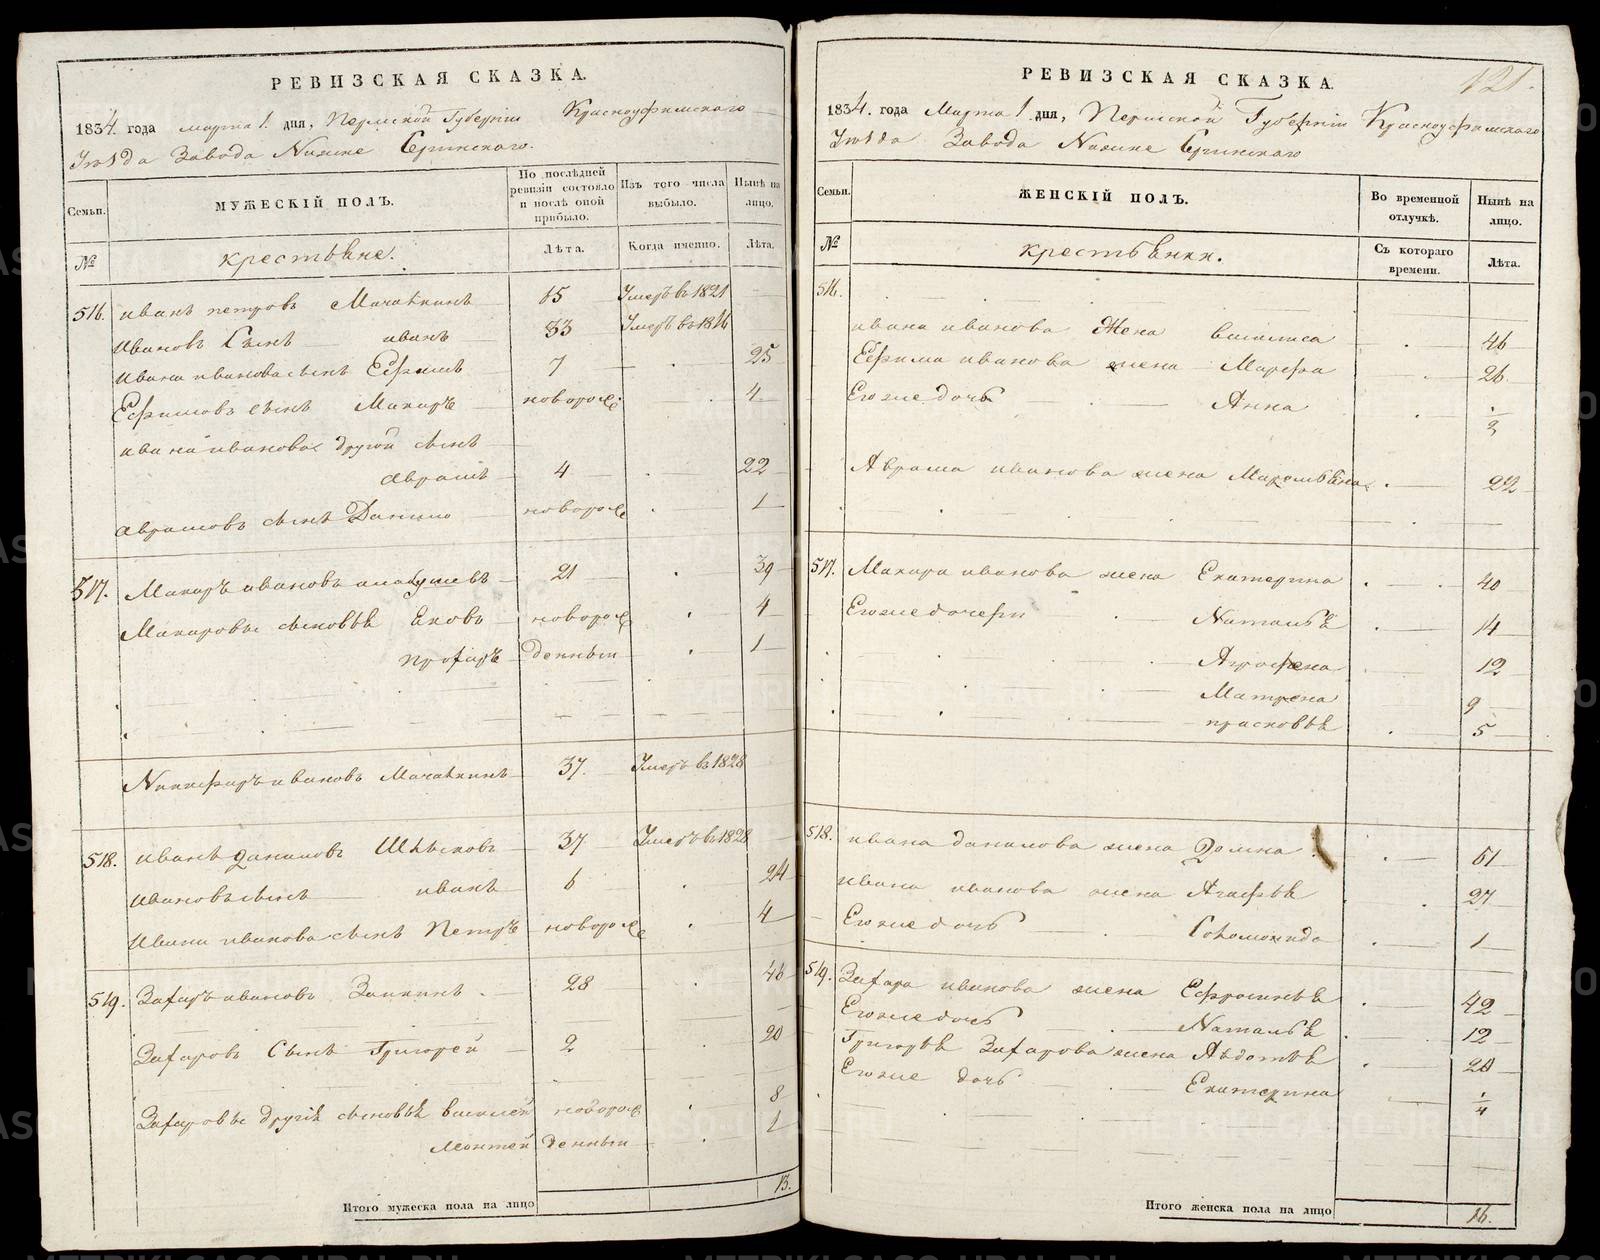 РЕВИЗСКАЯ СКАЗКА.
1834 года марта 1. дня, Пермской Губернии Красноуфимскаго
Уѣзда Завода Нижне Сергинскаго.
Семьи.
МУЖЕСКІЙ ПОЛЪ.
По послѣдней ревизіи состояло и послѣ оной прибыло.
Изъ того числа выбыло.
Нынѣ на лицо.
№
крестьяне.
Лѣта.
Когда именно.
Лѣта.
516. иванъ петровъ 15 Умеръ в 1821
ивановъ Сынъ иванъ 33 Умеръ в 1816
ивана иванова сынъ Ефимъ 7 25
Ефимовъ сынъ Макаръ новорож: 4
ивана иванова другой сынъ
аврамъ 4 22
аврамовъ сынъ Данило новорож 1
517. Макаръ ивановъ 21 39
Макаровы сыновья Яковъ новорож 4
профиръ денныи 1
Никифоръ ивановъ 37. Умеръ в 1828
518. иванъ даниловъ 37 Умеръ в 1828
ивановъ сынъ иванъ 6 24
ивана иванова сынъ Петръ новорож 4
519. Захаръ ивановъ Заикинъ 28 46
Захаровъ Сынъ Григорей 2 20
Захаровы другія сыновья василей новорож 8
денныи 1
Итого мужеска пола на лицо 13.
121.
РЕВИЗСКАЯ СКАЗКА.
1834. года Марта 1 дня, Пермской Губернии Красноуфимскаго
Уѣзда Завода Нижне Сергинскаго
Семьи.
ЖЕНСКІЙ ПОЛЪ.
Во временной отлучкѣ.
Нынѣ на лицо.
№
крестьянки.
Съ котораго времени.
Лѣта.
516.
ивана иванова Жена василиса 46
Ефима иванова жена Марфа 26
Его же дочь Анна 1/2
Аврама иванова жена Маремьяна 22
517. Макара иванова жена Екатерина 40
Его же дочери Наталья 14
Агрофена 12
Матрена 9
прасковья 5
518. ивана данилова жена Домна 51
ивана иванова жена Агафья 27
Его же дочь Соломонида 1
519. Захара иванова жена Ефросинья 42
Его же дочь Наталья 12
Григорья Захарова жена Авдотья 20
Его же дочь Екатерина 1/4
Итого женска пола на лицо 16.